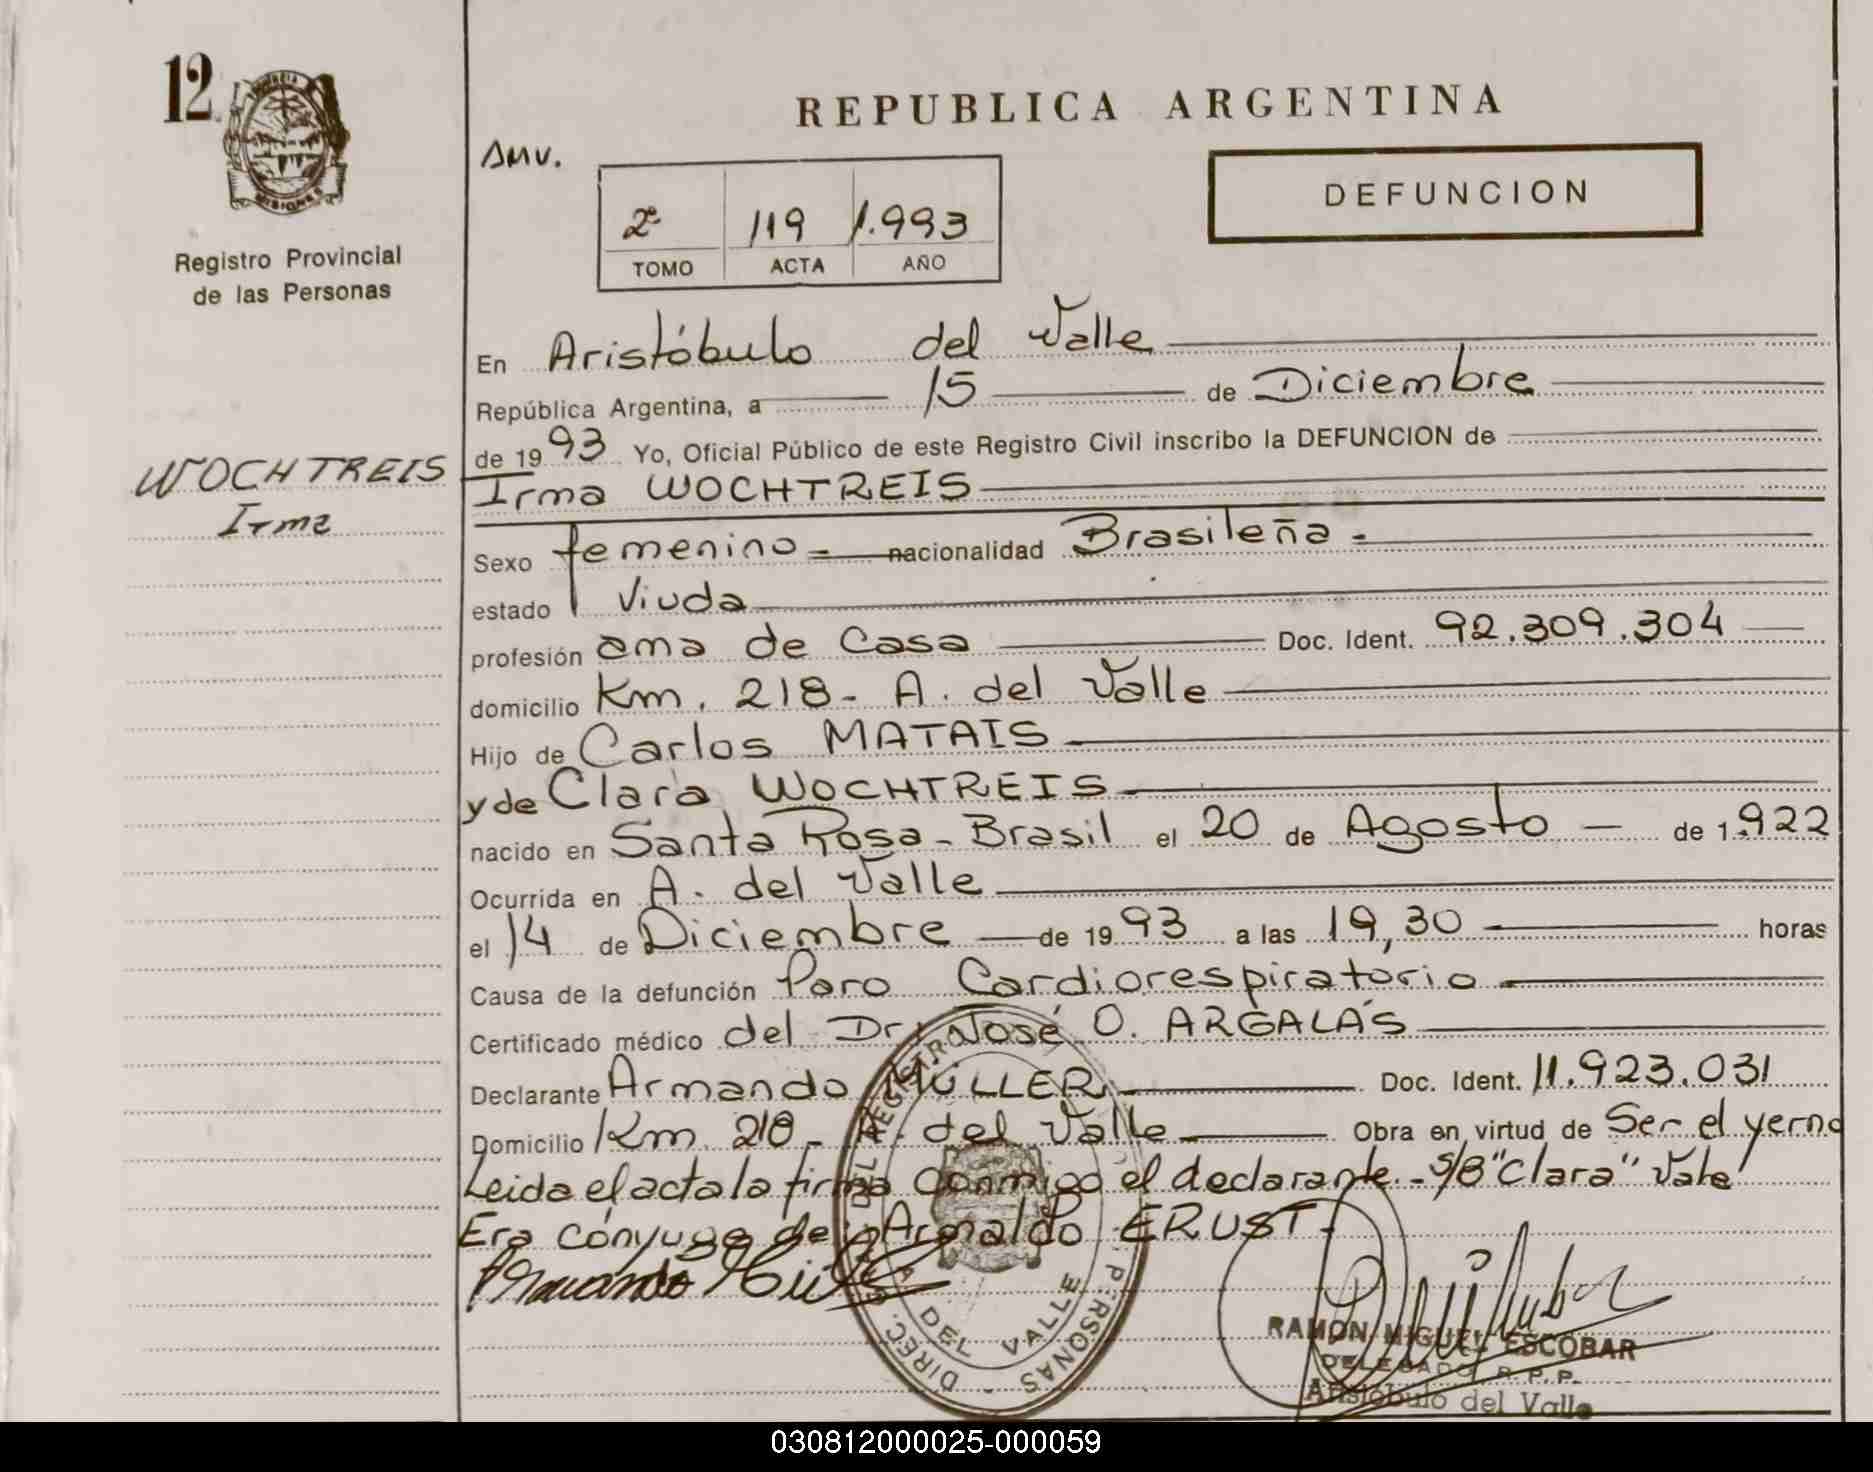 12
PROVINCIA
MISIONES
Registro Provincial
de las Personas
WOCHTREIS
Irma
REPUBLICA ARGENTINA
AMV.
2º 119 1.993
TOMO ACTA AÑO
DEFUNCION
En Aristóbulo del Valle
República Argentina, a 15 de Diciembre
de 1993 Yo, Oficial Público de este Registro Civil inscribo la DEFUNCION de
Irma WOCHTREIS
Sexo femenino - nacionalidad Brasileña -
estado Viuda
profesión ama de Casa Doc. Ident. 92.309.304
domicilio Km. 218 - A. del Valle
Hijo de Carlos MATAIS
y de Clara WOCHTREIS
nacido en Santa Rosa - Brasil el 20 de Agosto de 1.922
Ocurrida en A. del Valle
el 14 de Diciembre de 1993 a las 19,30 horas
Causa de la defunción Paro Cardiorespiratorio
Certificado médico del Dr. José O. ARGALÁS
Declarante Armando MÜLLER Doc. Ident. 11.923.031
Domicilio Km. 218 - A. del Valle Obra en virtud de Ser el yerno
Leida el acta la firma conmigo el declarante - S/B "Clara" Vale
Era cónyuge de: Arnaldo ERUST -
Armando
DIREC. DEL REGISTRO PERSONAS
DEL VALLE
RAMON MIGUEL ESCOBAR
DELEGADO R. P. P.
Aristóbulo del Valle
030812000025-000059